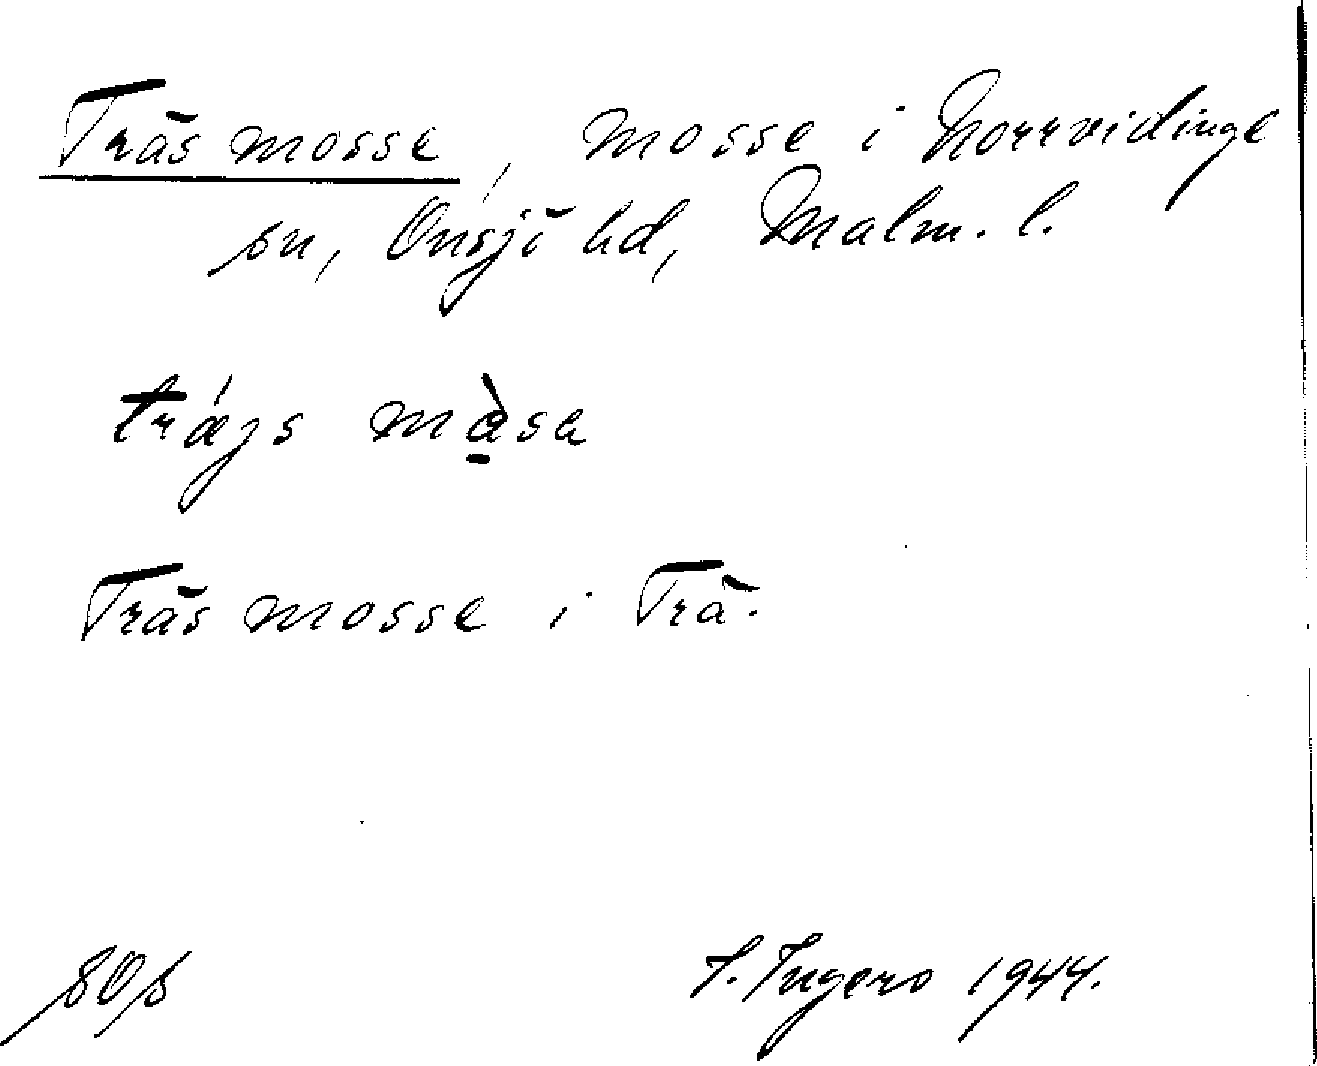 Träs mosse, mosse i Norrvidinge
sn, Onsjö hd, Malm. l.
trǽjs mà̱sa
Träs mosse i Trä.
I. Ingers 1944.